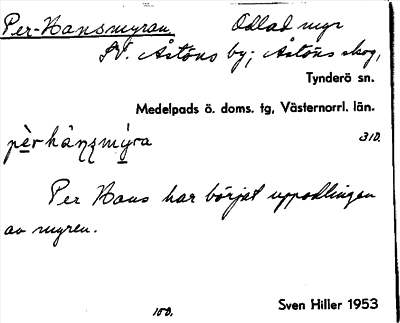 Per-Hansmyran Odlad myr
SV. Åstöns by; Åstöns skog,
Tynderö sn.
Medelpads ö. doms. tg, Västernorrl. län.
pèrhánsmýra 310.
Per Hans har börjat uppodlingen
av myren.
100.
Sven Hiller 1953